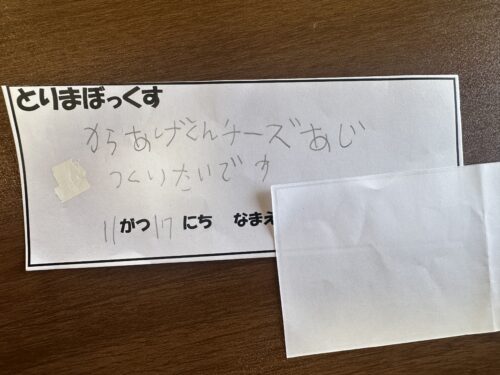 とりまぼっくす
からあげくんチーズあじ
つくりたいです
11がつ17にち なまえ